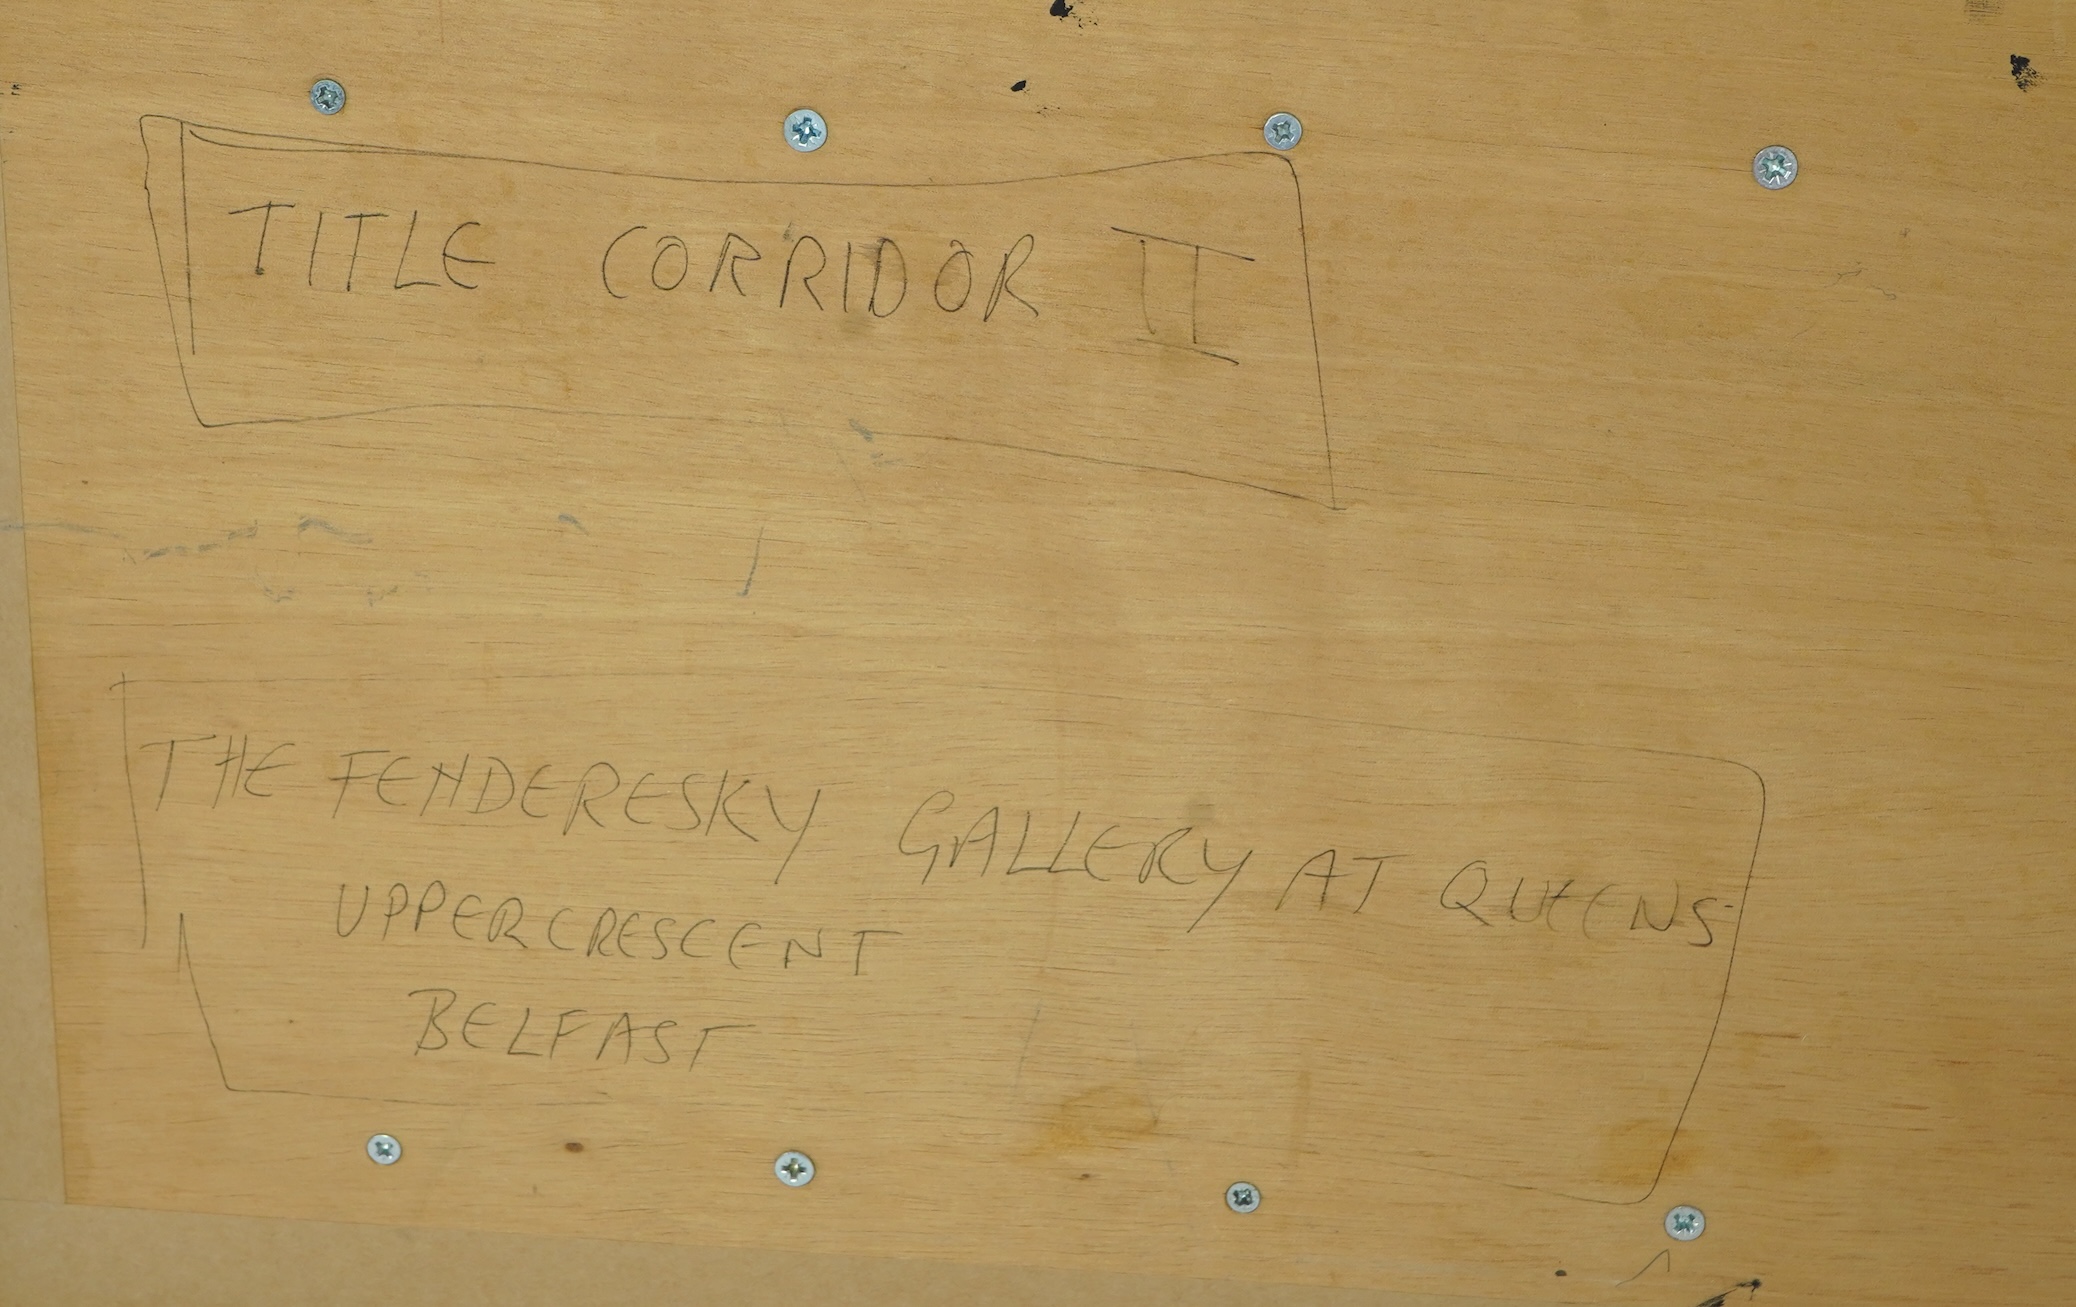 TITLE CORRIDOR II
THE FENDERESKY GALLERY AT QUEENS
UPPER CRESCENT
BELFAST